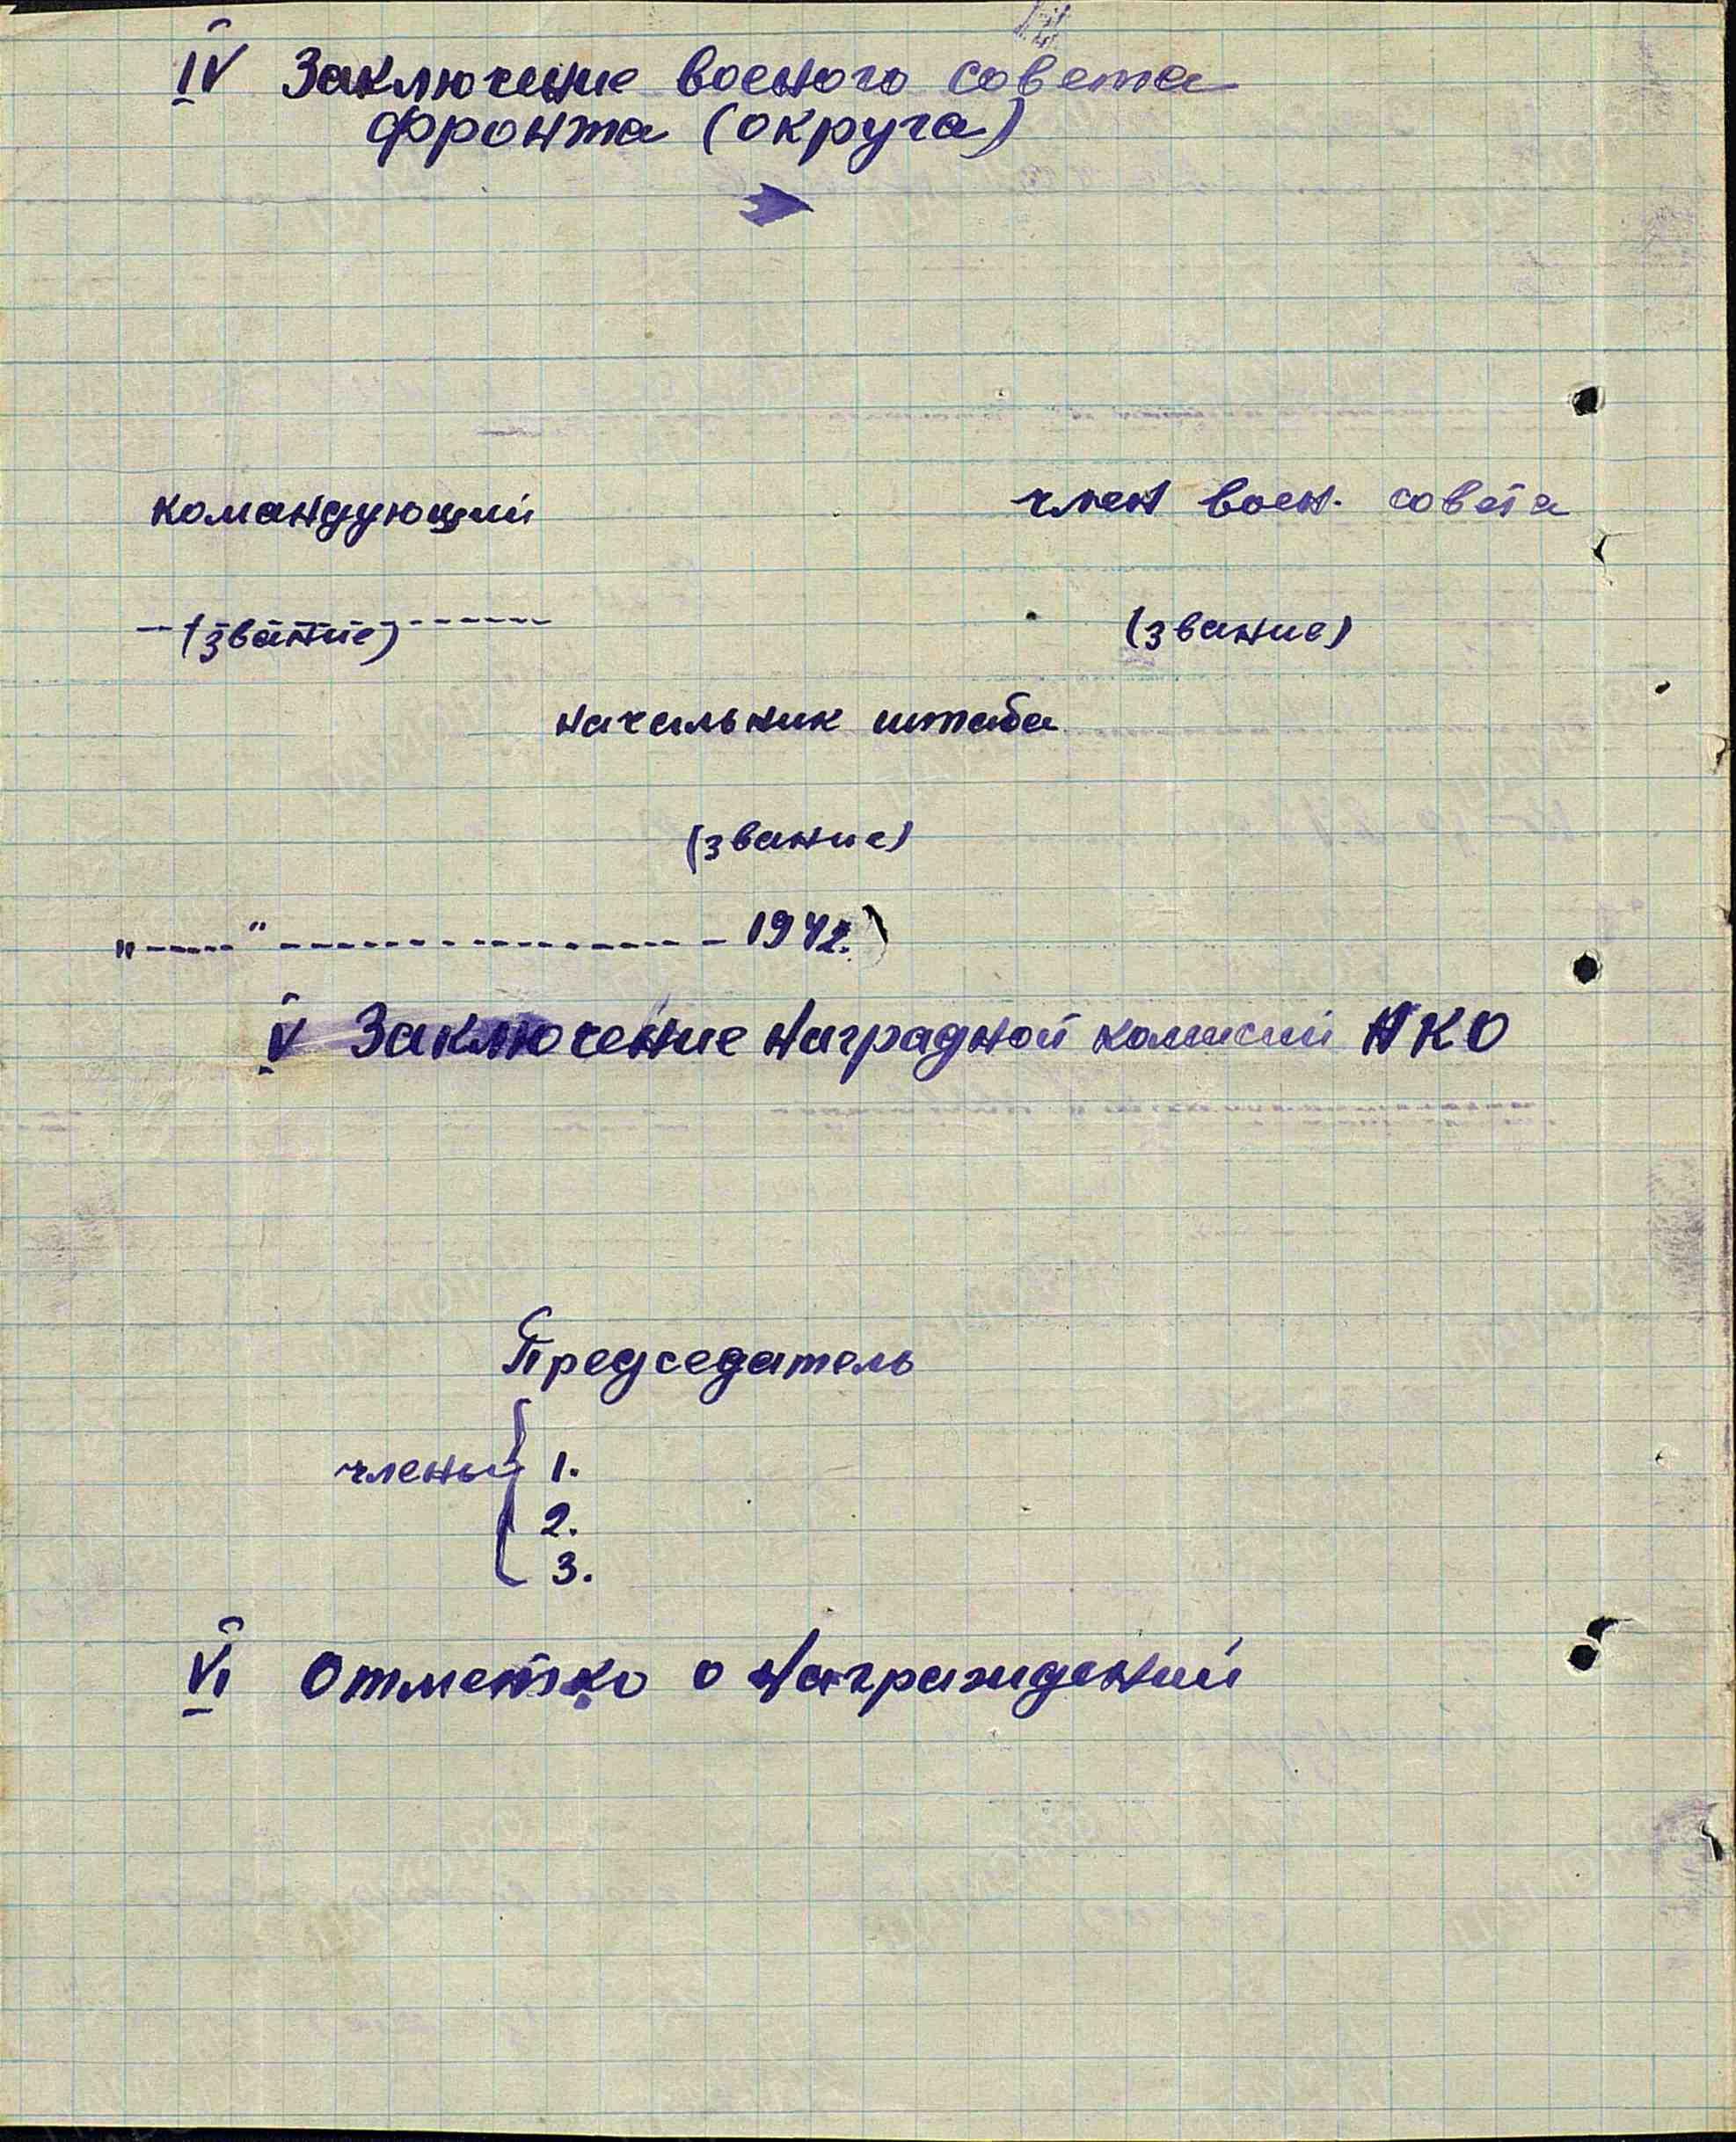 IV Заключение военого совета
фронта (округа)
командующий член воен. совета
(звание) (звание)
начальник штаба
(звание)
"-----" ---------------- 194г.
V Заключение наградной комисии НКО
Председатель
члены { 1.
2.
3.
VI Отметка о награждений